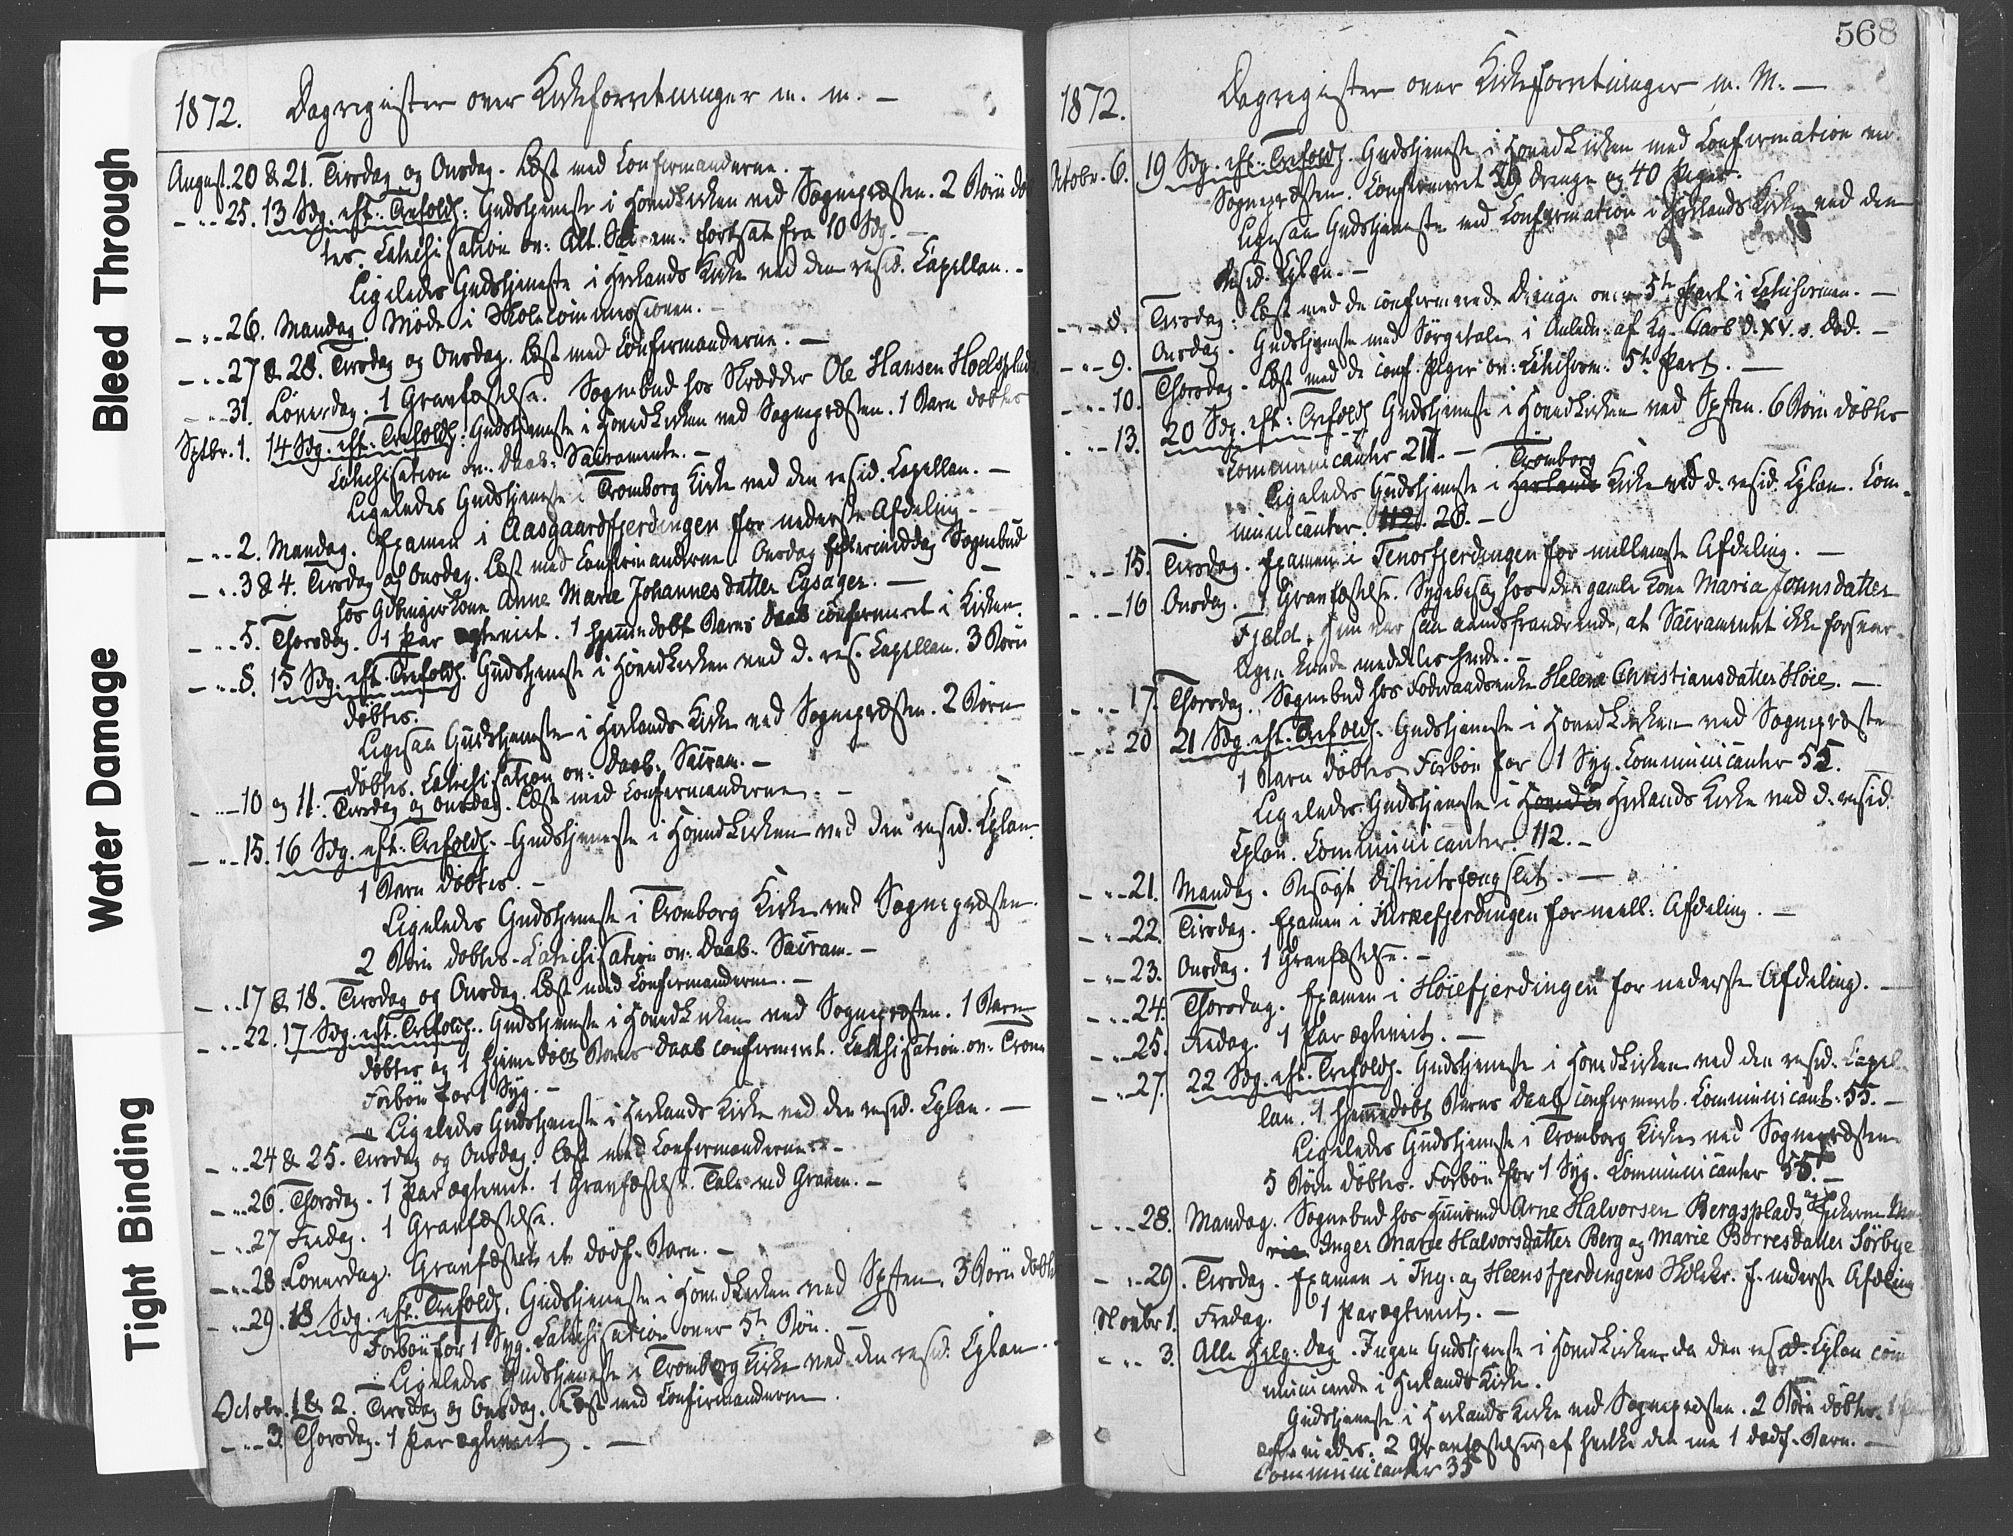 Bleed Through
Water Damage
Tight Binding
1872. Dagregister over Kirkeforretninger m. m. —
August. 20 & 21. Tirsdag og Onsdag. Læst med Confirmanderne. —
— „ — 25. 13 Sdg. eft. Trefoldh. Gudstjeneste i Hovedkirken ved Sognepræsten. 2 Børn døb
tes. Catechisation ov: Alt. Sacram: fortsat fra 10 Sdg. —
Ligeledes Gudstjeneste i Herlands Kirke ved den resid. Capellan. —
— „ — 26. Mandag. Møde i Skolecommissionen. —
— „ — 27 & 28. Tirsdag og Onsdag. Læst med Confirmanderne. —
— „ — 31. Løverdag. 1 Gravfæstelse. Sognebud hos Skrædder Ole Hansen Hoelsplads
Sptbr. 1. 14 Sdg. eft. Trefoldh. Gudstjeneste i Hovedkirken ved Sognepræsten. 1 Barn døbtes
Catechisation ov: Daab: Sacramente. —
Ligeledes Gudstjeneste i Tromborg Kirke ved den resid. Capellan. —
— „ — 2. Mandag. Examen i Aasgaardfjerdingen for nederste Afdeling. —
— „ — 3 & 4. Tirsdag og Onsdag. Læst med Confirmanderne. Onsdag Eftermiddag Sognebud
hos Gdbrugerkone Anne Marie Johannesdatter Lysager. —
— „ — 5. Thorsdag. 1 Par ægteviet. 1 hjemmedøbt Barns Daab confirmeret i Kirken.
— „ — 8. 15 Sdg. eft. Trefoldh. Gudstjeneste i Hovedkirken ved d. res. Capellan. 3 Børn
døbtes.
Ligesaa Gudstjeneste i Herlands Kirke ved Sognepræsten. 2 Børn
døbtes. Catechisation ov: Daab: Sacram. —
— „ — 10 og 11. Tirsdag og Onsdag. Læst med Confirmanderne. —
— „ — 15. 16 Sdg. eft. Trefoldh. Gudstjeneste i Hovedkirken ved den resid. Cplan.
1 Barn døbtes. —
Ligeledes Gudstjeneste i Tromborg Kirke ved Sognepræsten.
2 Børn døbtes. Catechisation ov: Daab: Sacram. —
— „ — 17 & 18. Tirsdag og Onsdag. Læst med Confirmanderne. —
— „ — 22. 17 Sdg. eft. Trefoldh. Gudstjeneste i Hovedkirken ved Sognepræsten. 1 Barn
døbtes og 1 hjemmedøbt Barns Daab confirmeret. Catechisation ov:
Forbøn for 1 Syg. —
Ligeledes Gudstjeneste i Herlands Kirke ved den resid. Cplan. —
— „ — 24 & 25. Tirsdag og Onsdag. Læst med Confirmanderne. —
— „ — 26. Thorsdag. 1 Par ægteviet. 1 Gravfæstelse. Tale ved Graven. —
— „ — 27 Fredag. 1 Gravfæstelse.
— „ — 28. Løverdag. Gravfæstet et dødf. Barn. —
— „ — 29. 18 Sdg. eft. Trefoldh. Gudstjeneste i Hovedkirken ved Spsten. 3 Børn døbte
Forbøn for 1 Syg. Catechisation over 5te Bøn. —
Ligeledes Gudstjeneste i Tromborg Kirke ved den resid. Cplan. —
Octobr. 1 & 2. Tirsdag og Onsdag. Læst med Confirmanderne.
— „ — 3. Thorsdag. 1 Par ægteviet. —
568
1872. Dagregister over Kirkeforretninger m. M. —
Octobr. 6. 19 Sdg. eft. Trefoldh. Gudstjeneste i Hovedkirken med Confirmation ved
Sognepræsten. Confirmeret 29 Drenge og 40 Piger.
Ligesaa Gudstjeneste med Confirmation i Herlands Kirke ved den
resid. Cplan. —
— „ — 8. Tirsdag: Læst med de confirmerede Drenge over 5te Part i Catechismen. —
— „ — 9. Onsdag. Gudstjeneste med Sørgetale i Anledn: af Kg. Carl d. XV.s Død. —
— „ — 10. Thorsdag. Læst med de conf. Piger ov: Catechism: 5te Part. —
— „ — 13. 20 Sdg. eft. Trefoldh. Gudstjeneste i Hovedkirken ved Spsten. 6 Børn døbtes
Communicanter 217. —
Ligeledes Gudstjeneste i Herlands Tromborg Kirke ved d. resid. Cplan. Com-
municanter. 112. 26. —
— „ — 15. Tirsdag. Examen i Tenorfjerdingen for mellemste Afdeling. —
— „ — 16 Onsdag. 1 Gravfæstelse. Sygebesøg hos den gamle Kone Maria Jonnsdatter
Fjeld. Hun var saa aandsfraværende, at Sacramentet ikke forsvar-
ligen kunde meddeles hende. —
— „ — 17. Thorsdag. Sognebud hos Føderaadsenke Helene Christiansdatter Høie. —
— „ — 20 21 Sdg. eft. Trefoldh. Gudstjeneste i Hovedkirken ved Sognepræste
1 Barn døbtes. Forbøn for 1 Syg. Communicanter 55.
Ligeledes Gudstjeneste i Hovedk Herlands Kirke ved d. resid.
Cplan. Communicanter 112. —
— „ — 21. Mandag. Besøgt Districtsfængslet. —
— „ — 22. Tirsdag. Examen i Kirkefjerdingen for mell: Afdeling. —
— „ — 23. Onsdag. 1 Gravfæstelse. —
— „ — 24. Thorsdag. Examen i Høiefjerdingen for nederste Afdeling. —
— „ — 25. Fredag. 1 Par ægteviet. —
— „ — 27. 22 Sdg. eft. Trefoldh. Gudstjeneste i Hovedkirken ved den resid. Capel-
lan. 1 hjemmedøbt Barns Daab confirmeret. Communicant: 55. —
Ligeledes Gudstjeneste i Tromborg Kirke ved Sognepræsten
5 Børn døbtes. Forbøn for 1 Syg. Communicanter 55. —
— „ — 28. Mandag. Sognebud hos Huusmd Arne Halvorsen Bergsplads,
Inger Marie Halvorsdatter Berg og Marie Børresdatter Sørbye
— „ — 29. Tirsdag. Examen i Ing. og Heensfjerdingens Skolekr. f. nederste Afdeling
Novbr 1. Fredag. 1 Par ægteviet. —
— „ — 3. Alle Helg: Dag. Ingen Gudstjeneste i Hovedkirken da den resid. Cplan com
municerede i Herlands Kirke.
Gudstjeneste i Herlands Kirke ved Sognepræsten. 2 Børn døbtes. 1 Par
ægteviedes. 2 Gravfæstelser, af hvilke den ene 1 dødf. Barn. —
Communicanter 35